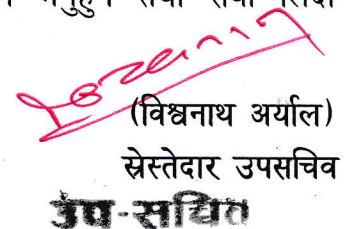 (विश्वनाथ अर्याल)
स्रेस्तेदार उपसचिव
उप-सचिव